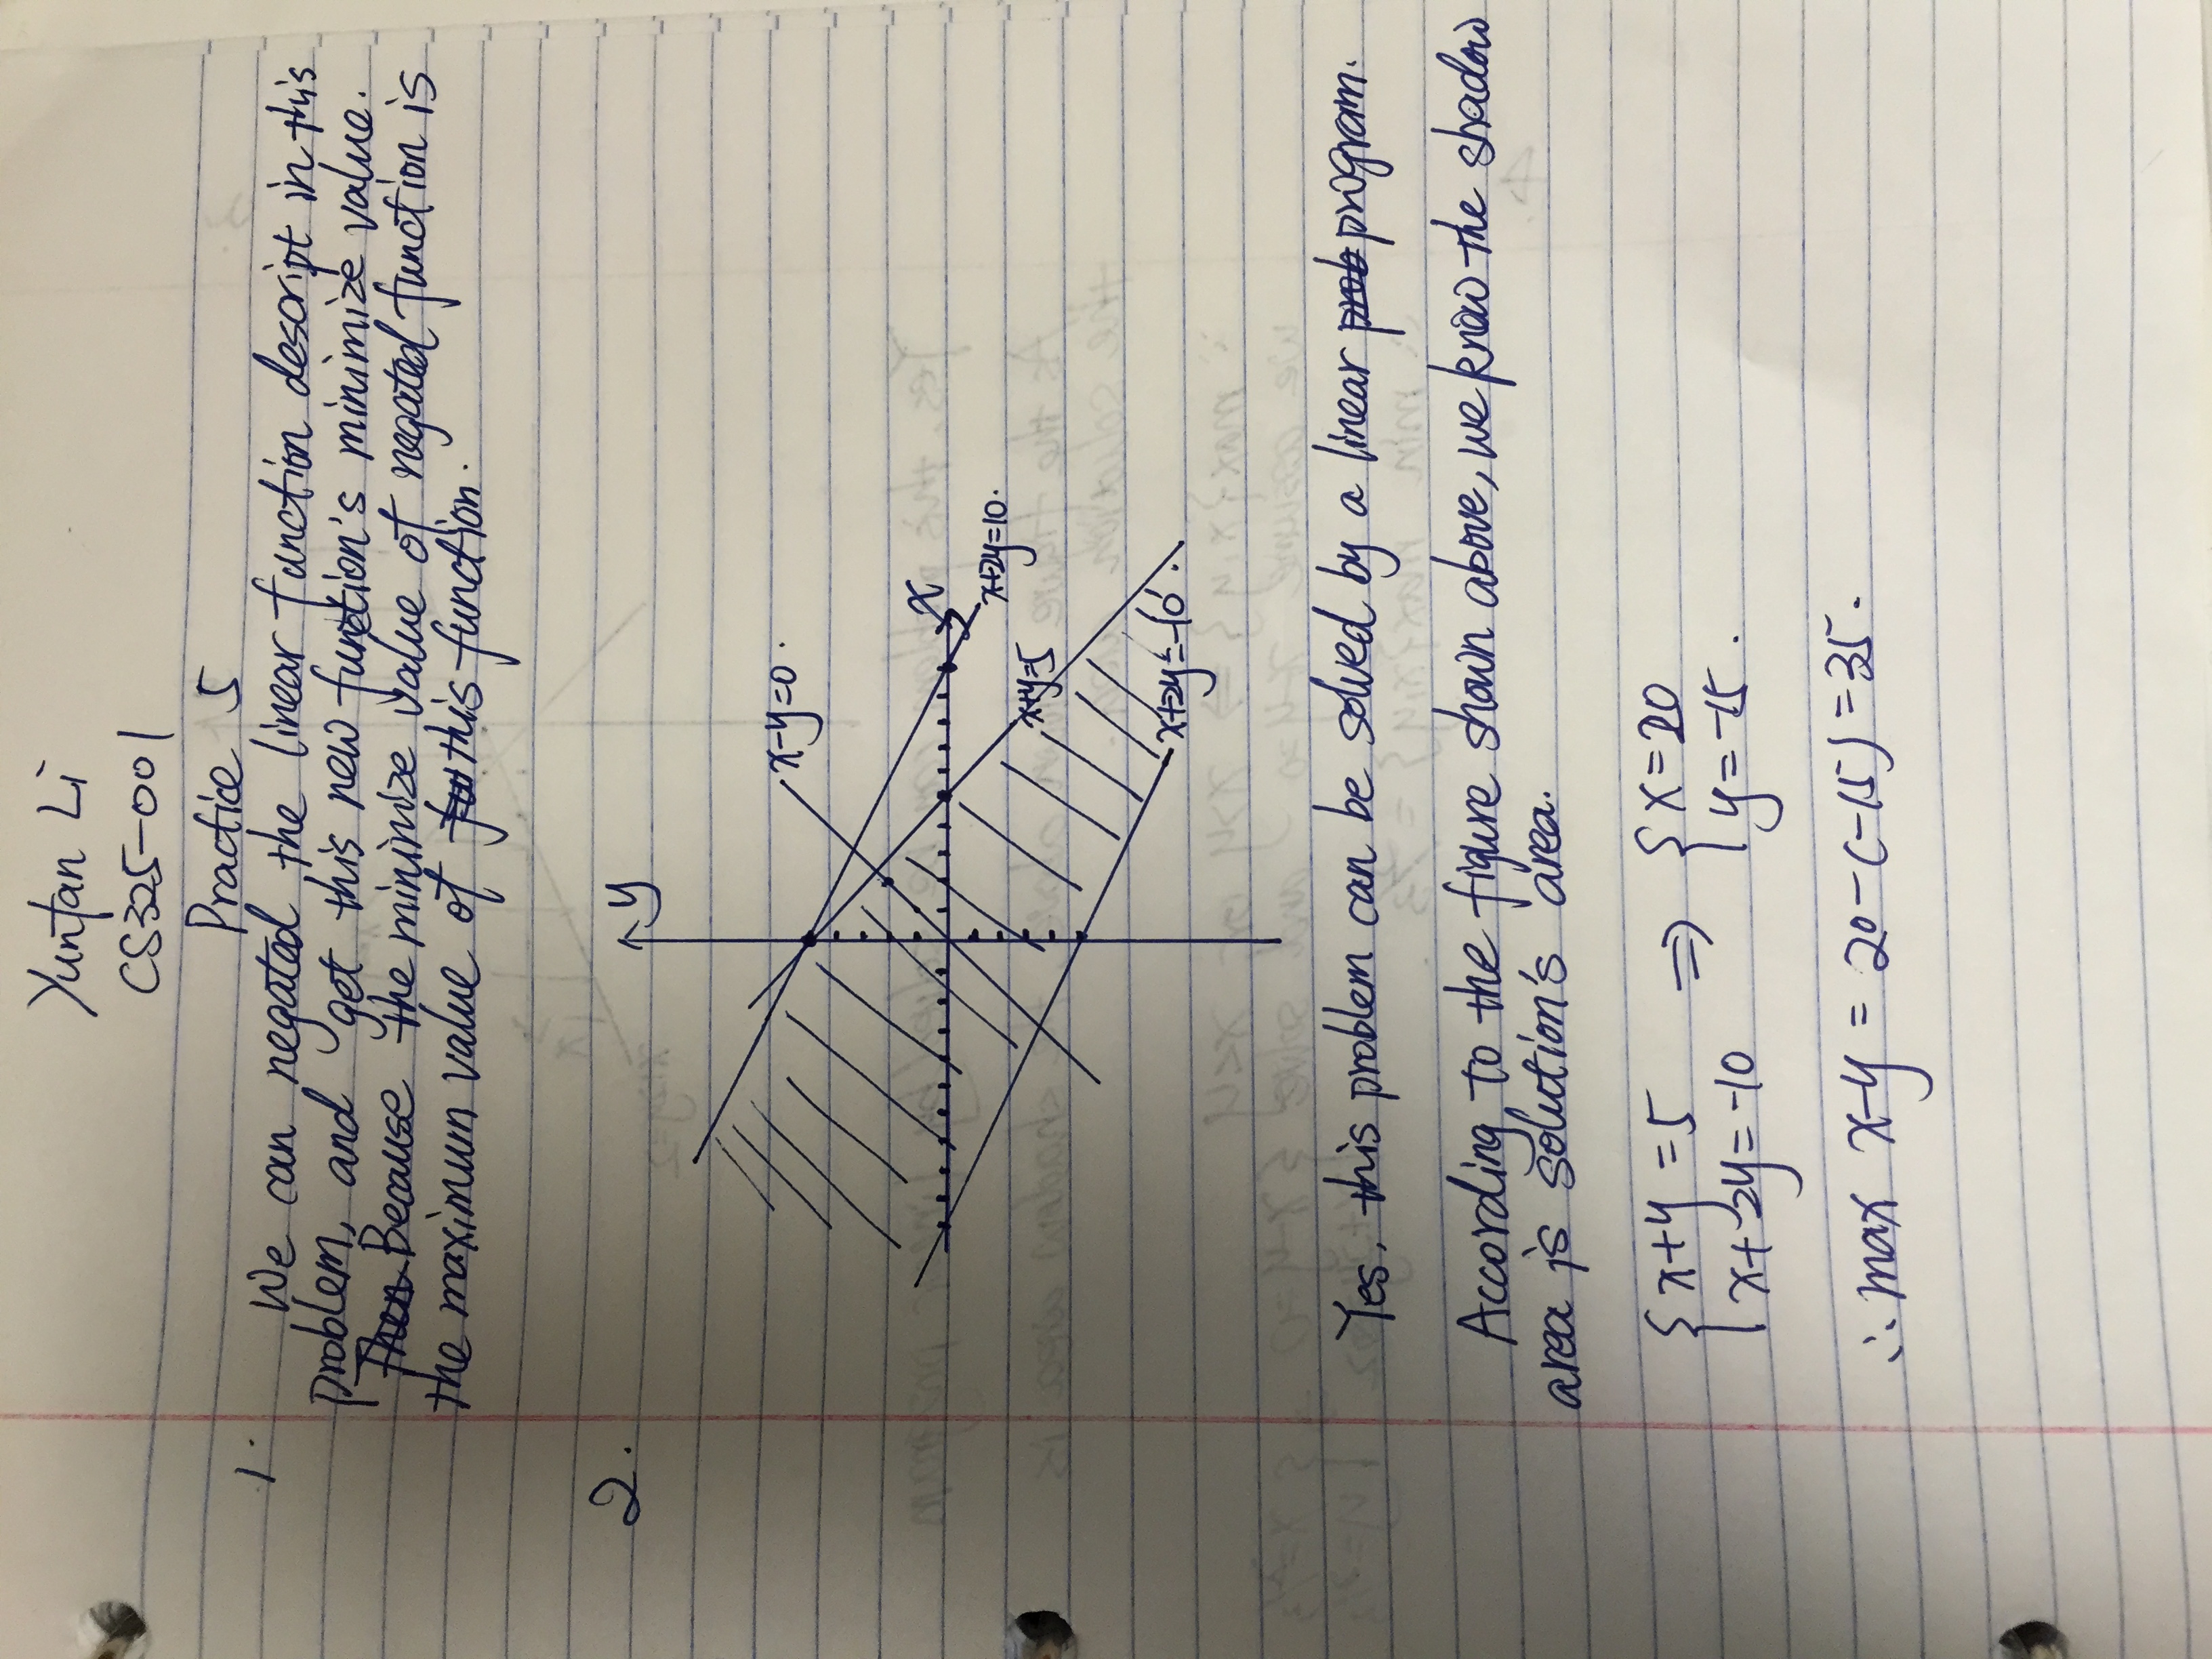 Yuntan Li
CS325-001
Practice 5
1.
We can negated the linear function descript in this
problem, and get this new function's minimize value.
Then Because the minimize value of negated function is
the maximum value of this function.
2.
y
x-y=0.
x
x+2y=10.
x+y=5
x+2y=-10.
Yes, this problem can be solved by a linear prob program.
According to the figure shown above, we know the shadow
area is solution's area.
{ x+y=5 ⇒ { x=20
x+2y=-10 y=-15.
∴ max x-y = 20-(-15)=35.